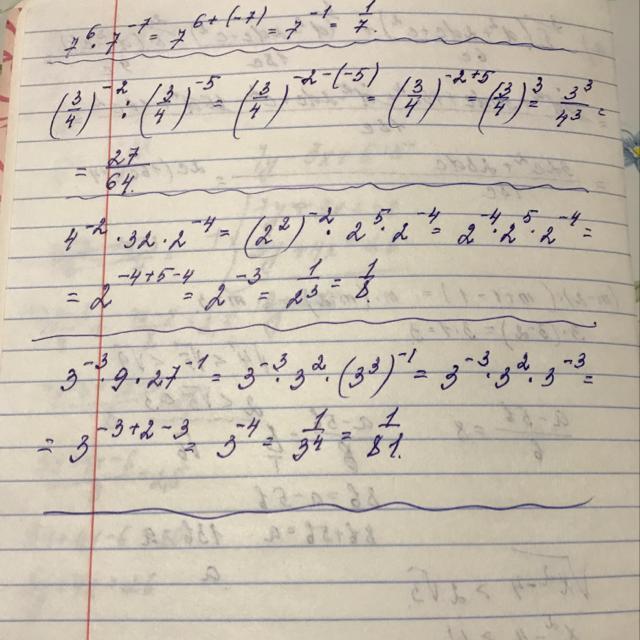 7⁶·7⁻⁷ = 7⁶⁺⁽⁻⁷⁾ = 7⁻¹ = 1/7.
(3/4)⁻² : (3/4)⁻⁵ = (3/4)⁻²⁻⁽⁻⁵⁾ = (3/4)⁻²⁺⁵ = (3/4)³ = 3³/4³ =
= 27/64.
4⁻²·32·2⁻⁴ = (2²)⁻²·2⁵·2⁻⁴ = 2⁻⁴·2⁵·2⁻⁴ =
= 2⁻⁴⁺⁵⁻⁴ = 2⁻³ = 1/2³ = 1/8.
3⁻³·9·27⁻¹ = 3⁻³·3²·(3³)⁻¹ = 3⁻³·3²·3⁻³ =
= 3⁻³⁺²⁻³ = 3⁻⁴ = 1/3⁴ = 1/81.